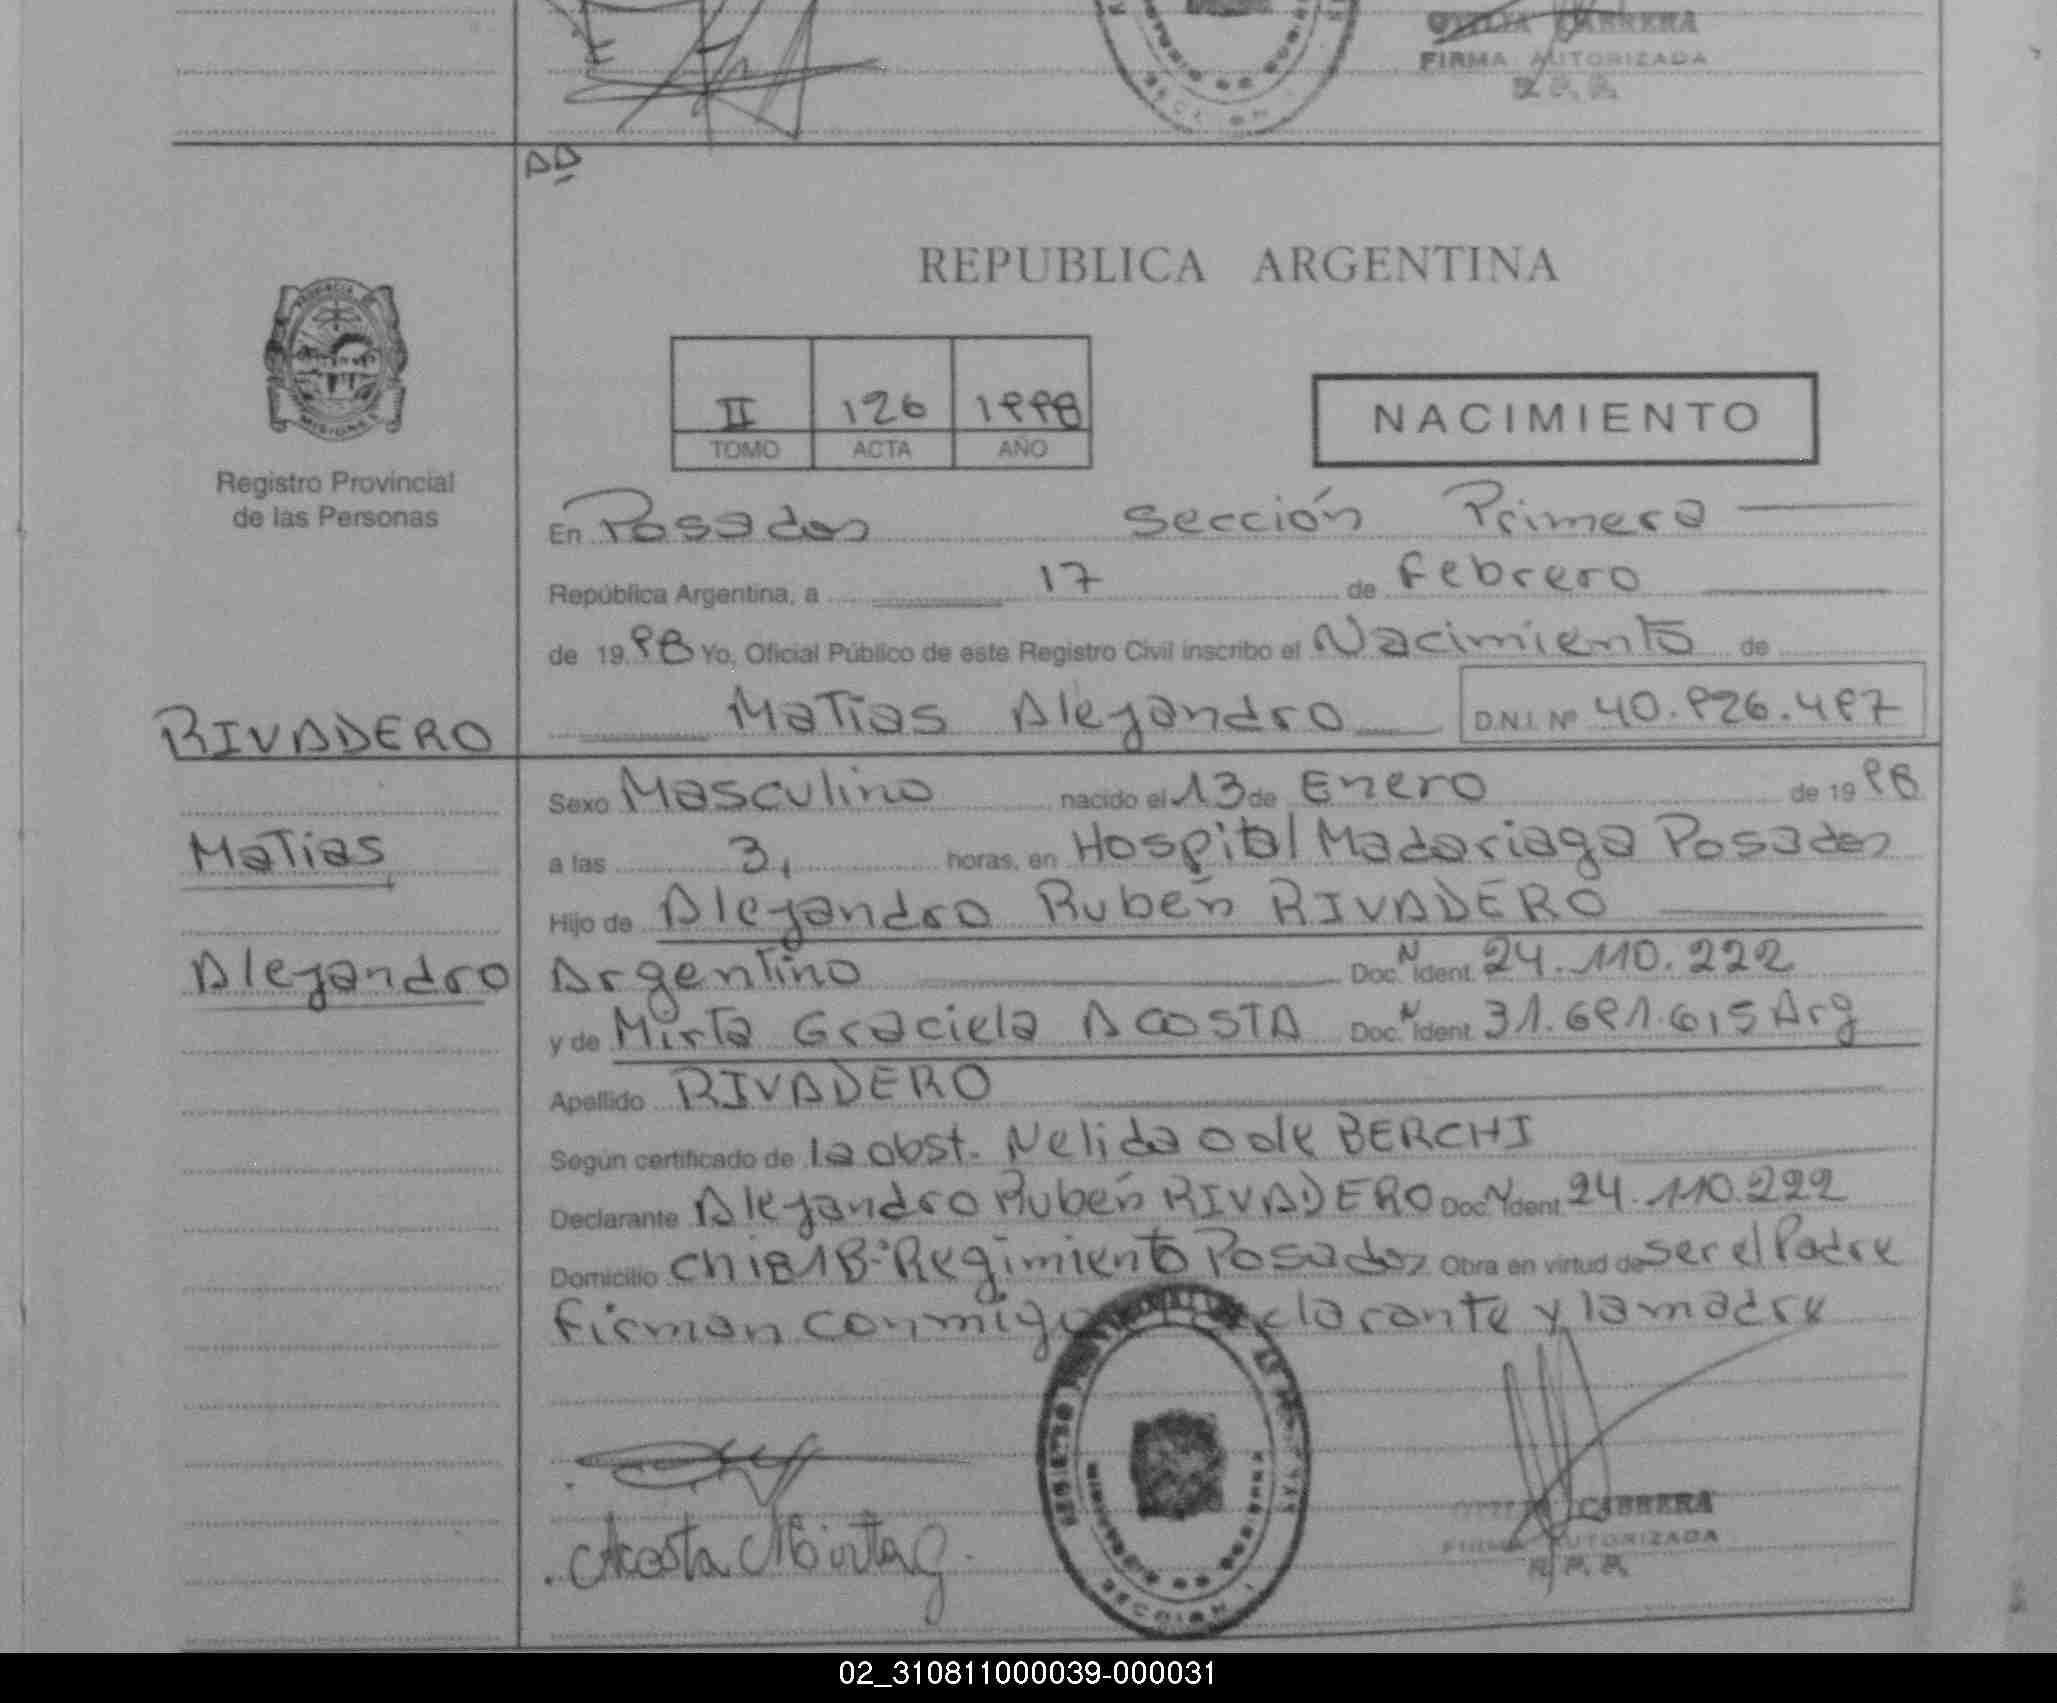 CABRERA
FIRMA AUTORIZADA
R.P.R.
REPUBLICA ARGENTINA
II 126 1998
TOMO ACTA AÑO
NACIMIENTO
PROVINCIA DE
MISIONES
Registro Provincial
de las Personas
En Posadas Sección Primera
República Argentina, a 17 de Febrero
de 1998 Yo, Oficial Público de este Registro Civil inscribo el Nacimiento de
RIVADERO
Matias Alejandro D.N.I. Nº 40.926.497
Sexo Masculino nacido el 13 de Enero de 1998
Matias
a las 3, horas, en Hospital Madariaga Posadas
Hijo de Alejandro Rubén RIVADERO
Alejandro
Argentino Doc. N Ident. 24.110.222
y de Mirta Graciela ACOSTA Doc. N Ident. 31.691.615 Arg
Apellido RIVADERO
Según certificado de la obst. Nelida O de BERCHI
Declarante Alejandro Rubén RIVADERO Doc. N Ident. 24.110.222
Domicilio Regimiento Posadas Obra en virtud de ser el Padre
Firman conmigo declarante y la madre
Acosta Mirta G.
SECCION 1
CABRERA
FIRMA AUTORIZADA
R.P.R.
02_310811000039-000031